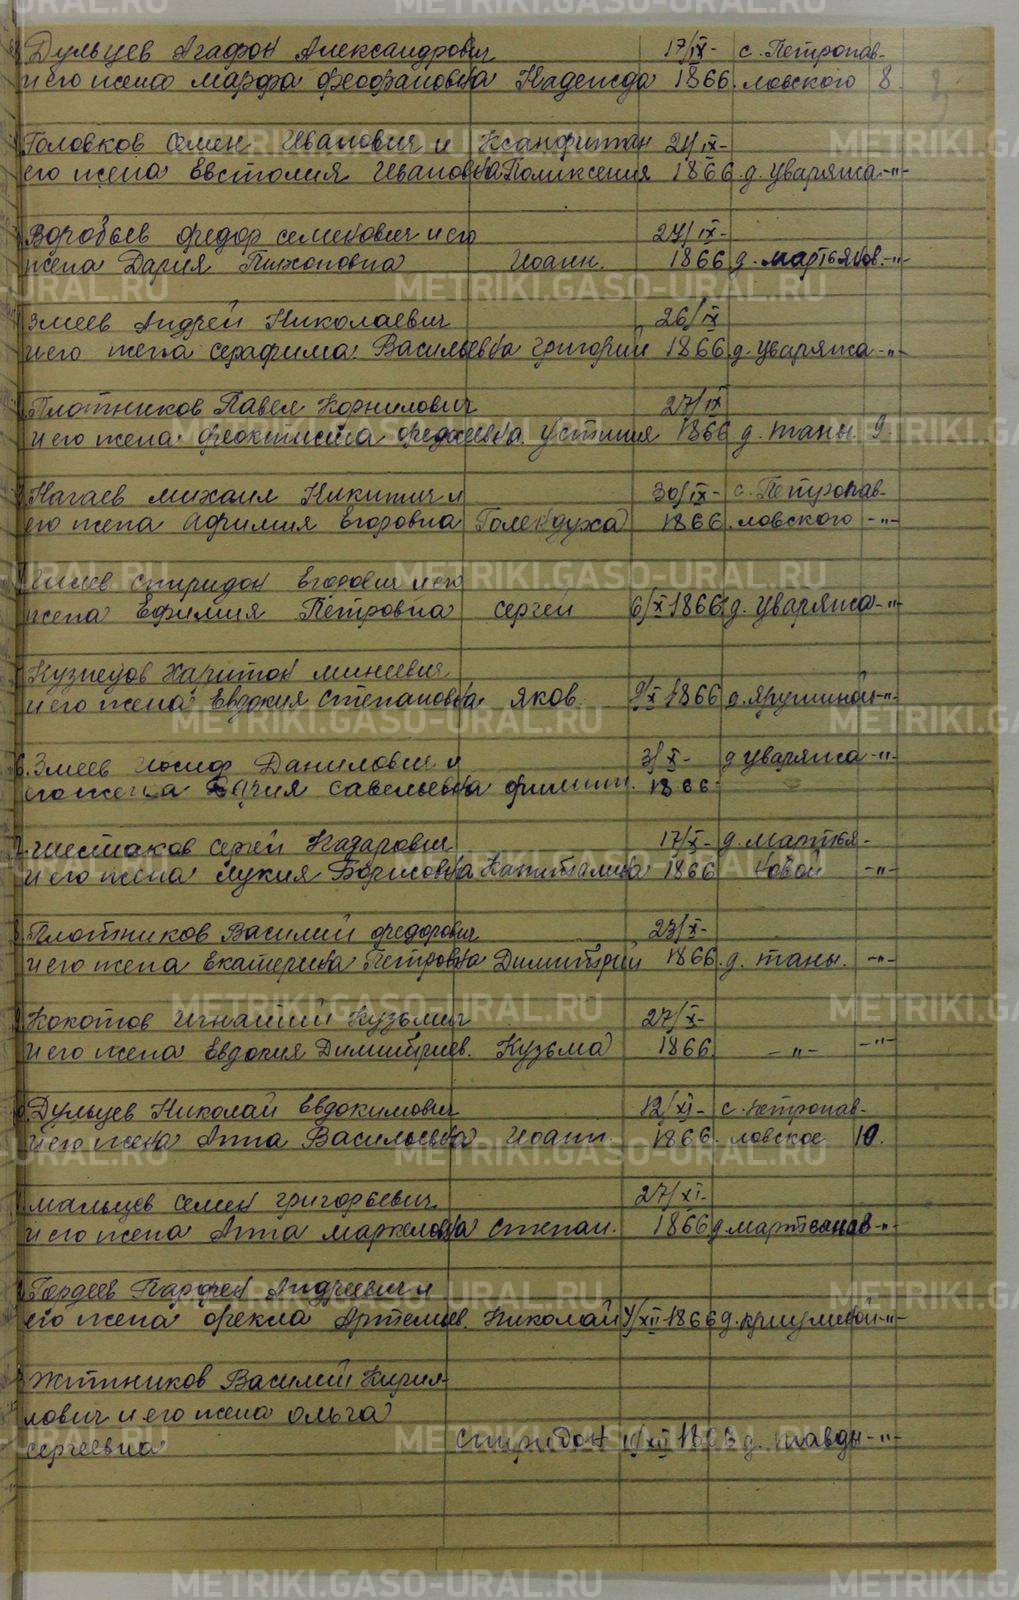 Дульцев Агафон Александрович 17/IX- с. Петропав-
и его жена Марфа Феофановна Надежда 1866. ловского 8.
Головков Семен Иванович и Ксанфиппан 24/IX-
его жена Евстолия Ивановна Поликсения 1866. д. Уваряжа -"-
Воробьев Федор Семенович и его 24/IX-
жена Дария Тихоновна Иоанн. 1866 д. Мартьянов. -"-
Змеев Андрей Николаевич 26/IX
и его жена Серафима Васильевна Григорий 1866. д. Уваряжа -"-
Плотников Павел Корнилович 27/IX
и его жена Феоктиста Федеевна Устиния 1866 д. Таны. 9.
Нагаев Михаил Никитич и 30/IX- с. Петропав-
его жена Афимия Егоровна Голендуха 1866. ловского -"-
Спиридон Егорович и его
жена Ефимия Петровна Сергей 6/X 1866. д. Уваряжа -"-
Кузнецов Харитон Минеевич
и его жена Евдокия Степановна Яков. 9/X 1866 д. Ярушиной -"-
Змеев Иосиф Данилович и 3/X- д Уваряжа -"-
его жена Дария Савельевна Филипп. 1866-
Шестаков Сергей Назарович 17/X- д. Мартья-
и его жена Лукия Борисовна Капитолина 1866 новой -"-
Плотников Василий Федорович 23/X-
и его жена Екатерина Петровна Димитрий 1866. д. Таны. -"-
Кокотов Игнатий Кузьмич 27/X-
и его жена Евдокия Димитриев. Кузьма 1866. -"- -"-
Дульцев Николай Евдокимович 12/XI- с. Петропав-
и его жена Анна Васильевна Иоанн. 1866. ловское 10.
Мальцев Семен Григорьевич 27/XI-
и его жена Анна Маркеловна Степан. 1866 д. Мартьянов -"-
Гордеев Парфен Андреевич и
его жена Фекла Артемьев. Николай 4/XII-1866 д. Криулиной -"-
Житников Василий Кирил-
лович и его жена Ольга
Сергеевна Спиридон 11/XII д. Тавды -"-
METRIKI.GASO-URAL.RU